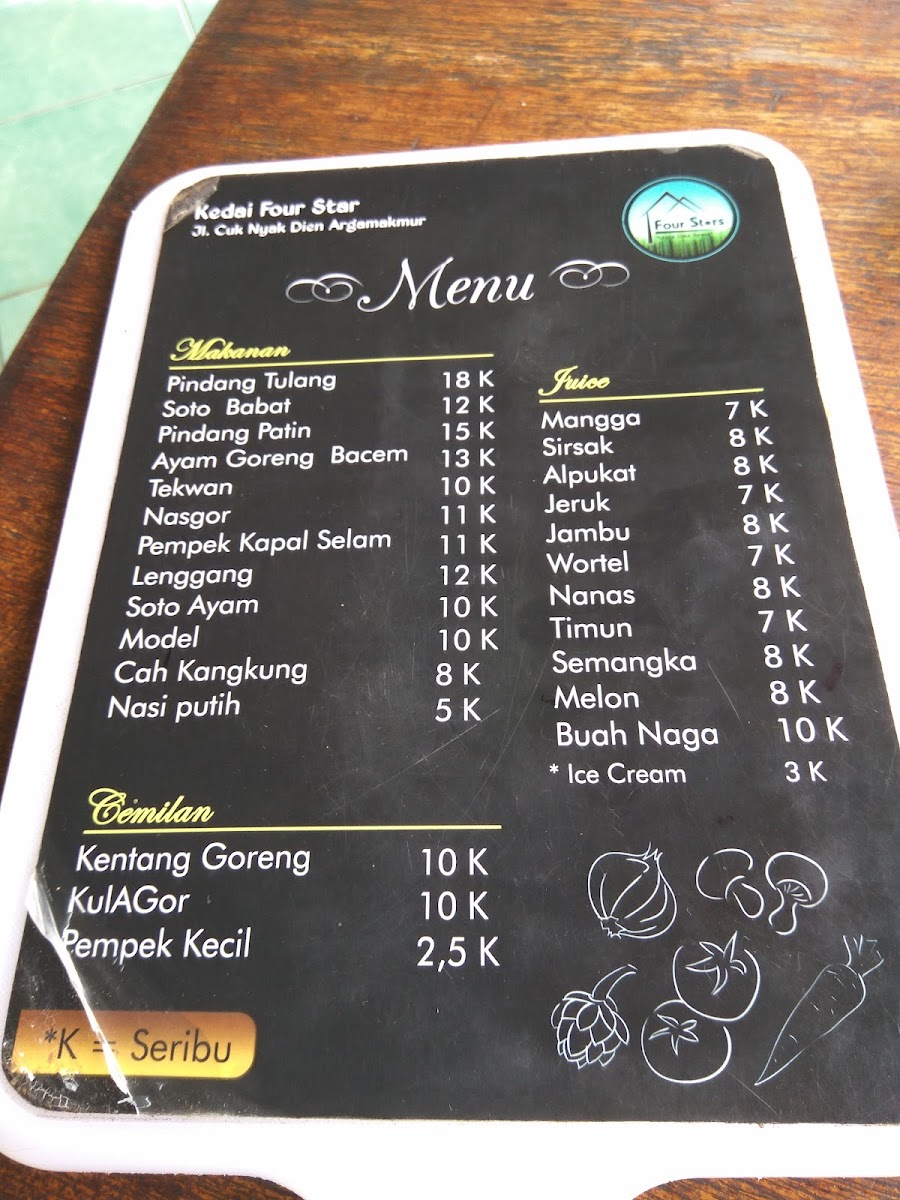 Kedai Four Star
Jl. Cuk Nyak Dien Argamakmur
Four Stars
Menu
Makanan
Pindang Tulang 18 K
Soto Babat 12 K
Pindang Patin 15 K
Ayam Goreng Bacem 13 K
Tekwan 10 K
Nasgor 11 K
Pempek Kapal Selam 11 K
Lenggang 12 K
Soto Ayam 10 K
Model 10 K
Cah Kangkung 8 K
Nasi putih 5 K
Juice
Mangga 7 K
Sirsak 8 K
Alpukat 8 K
Jeruk 7 K
Jambu 8 K
Wortel 7 K
Nanas 8 K
Timun 7 K
Semangka 8 K
Melon 8 K
Buah Naga 10 K
* Ice Cream 3 K
Cemilan
Kentang Goreng 10 K
KulAGor 10 K
Pempek Kecil 2,5 K
*K = Seribu